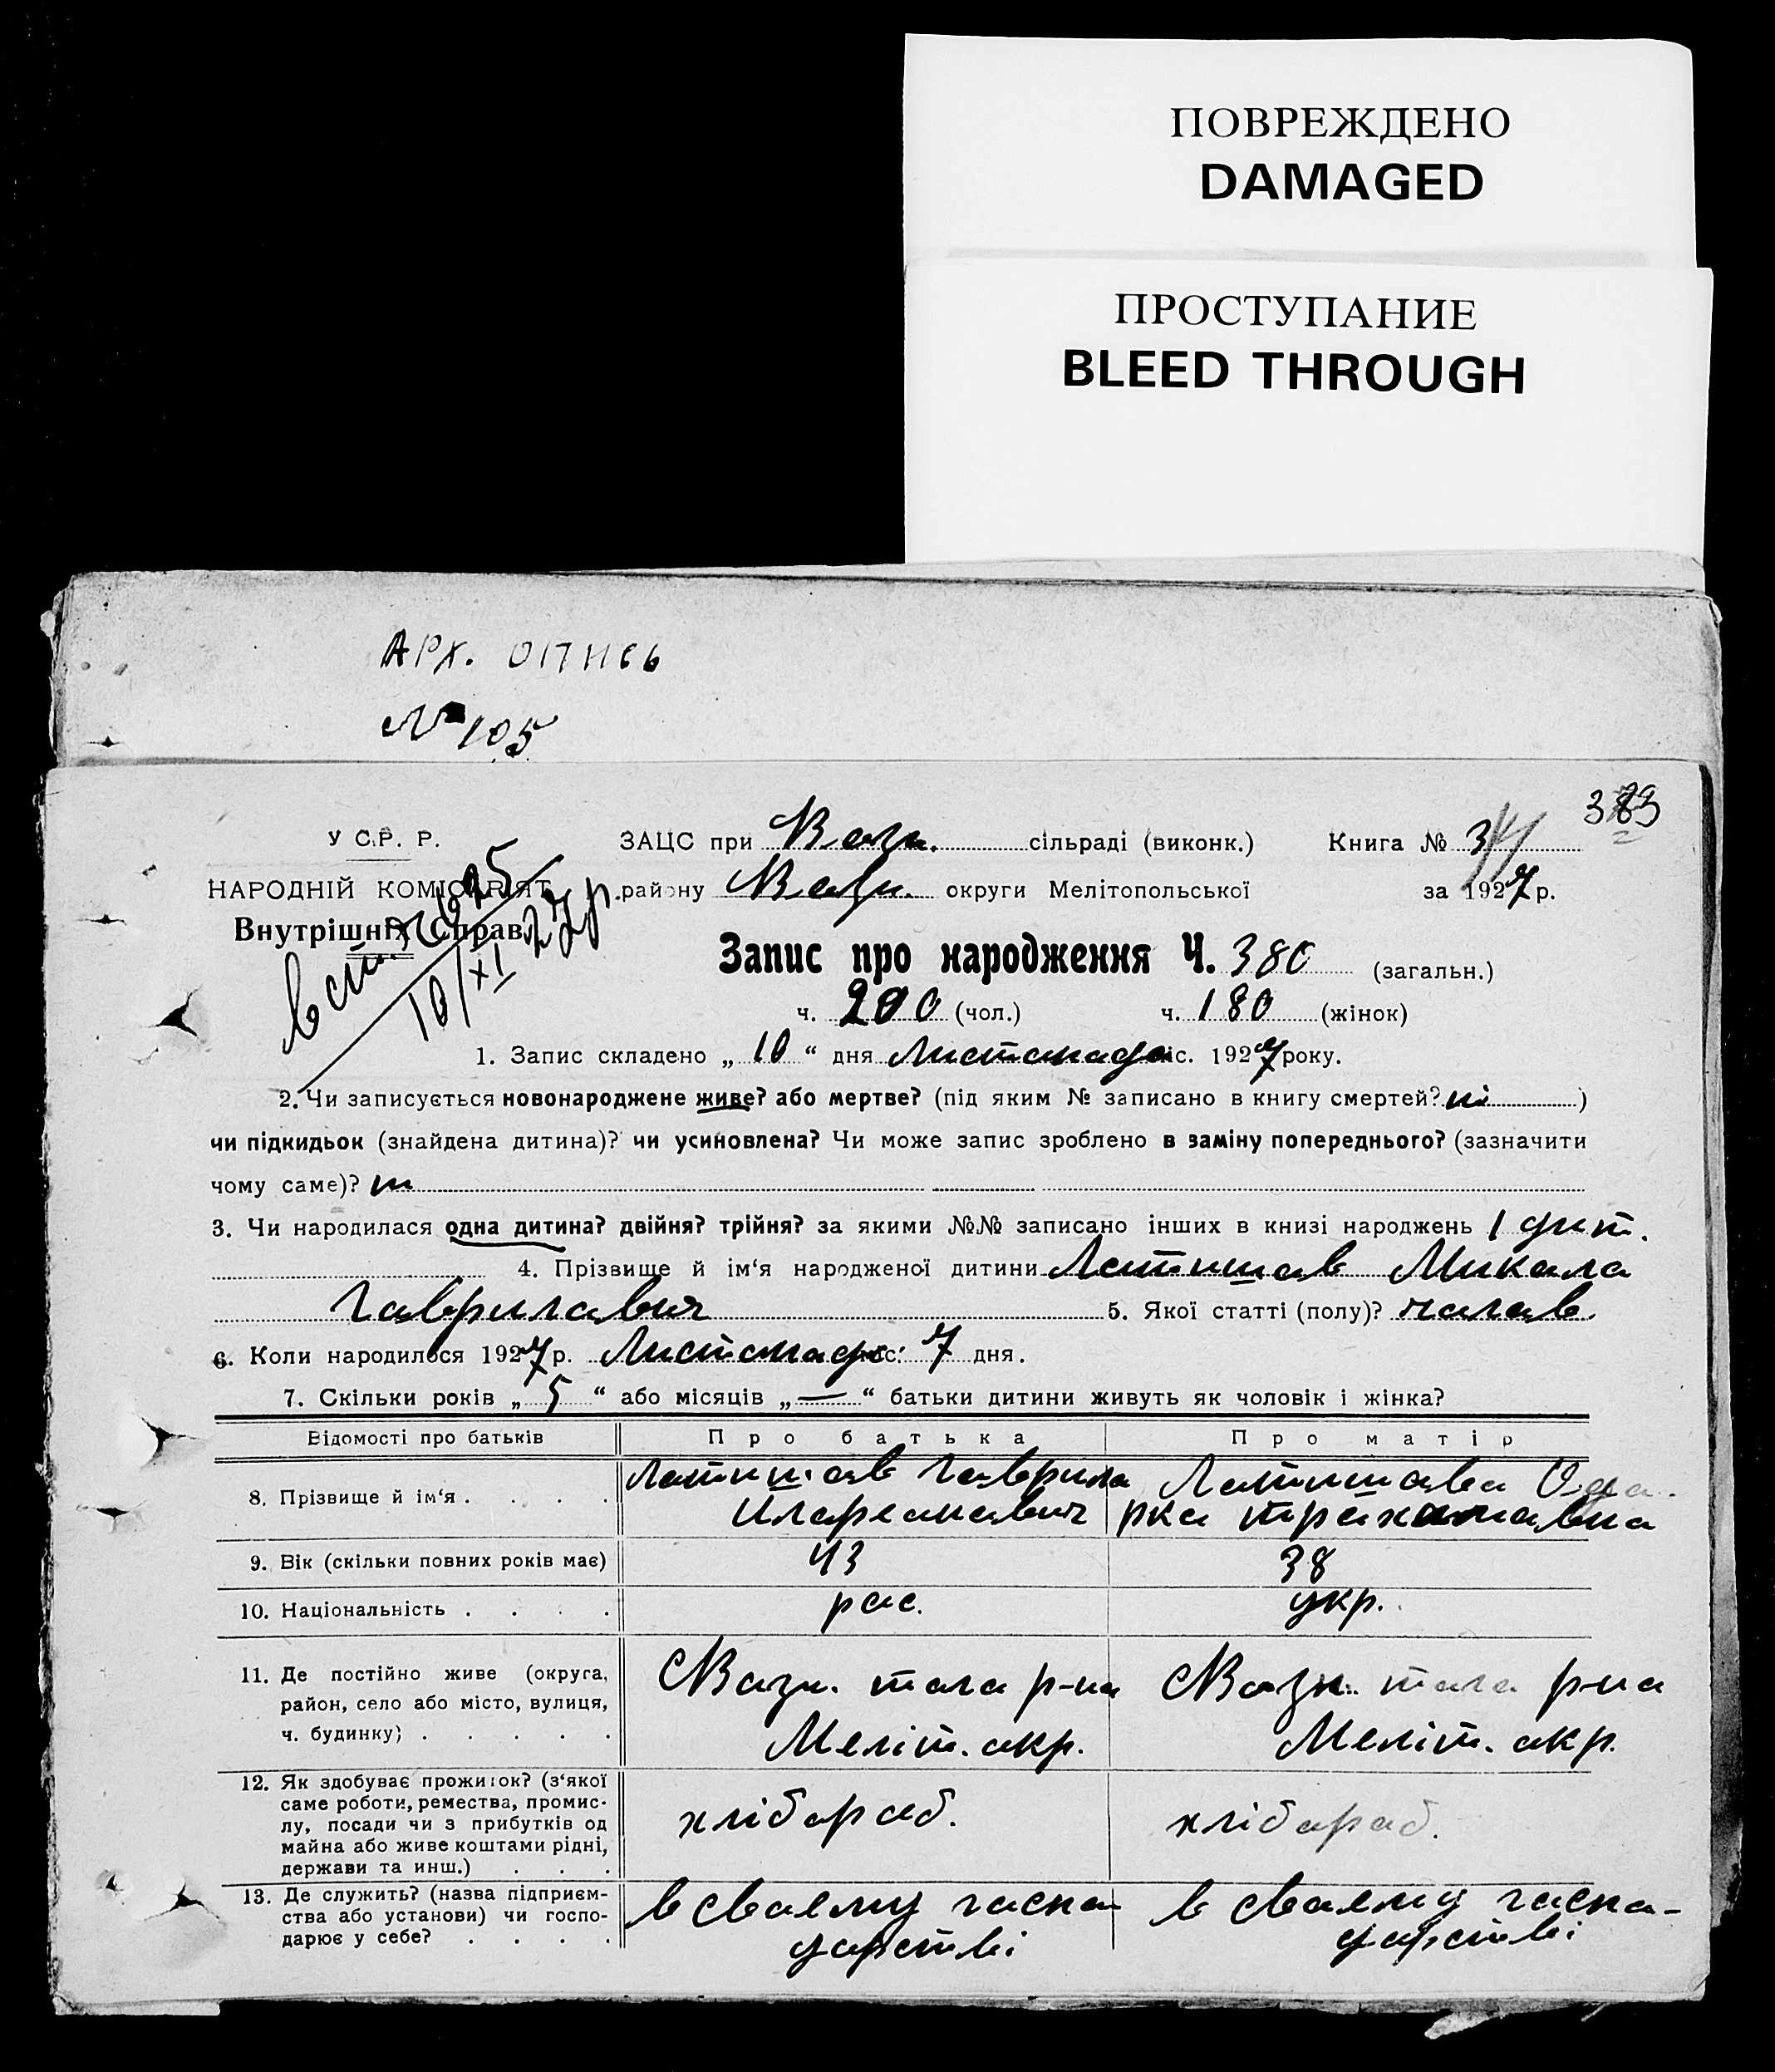 ПОВРЕЖДЕНО
DAMAGED
ПРОСТУПАНИЕ
BLEED THROUGH
АРХ. ОПИСЬ
№ 105
383
У С.Р. Р.
ЗАЦС при Возн. сільраді (виконк.)
Книга № 3
НАРОДНІЙ КОМІСАРІЯТ
району Возн. округи Мелітопольської
за 1927 р.
Внутрішніх Справ
10/XI 27 р.
Запис про народження Ч. 380 (загальн.)
ч. 200 (чол.) ч. 180 (жінок)
1. Запис складено „ 10 “ дня Листопада міс. 1927 року.
2. Чи записується новонароджене живе? або мертве? (під яким № записано в книгу смертей? ні )
чи підкидьок (знайдена дитина)? чи усиновлена? Чи може запис зроблено в заміну попереднього? (зазначити
чому саме)? ні
3. Чи народилася одна дитина? двійня? трійня? за якими №№ записано інших в книзі народжень 1 дит.
4. Прізвище й ім‘я народженої дитини Латишов Микола
Гаврилович 5. Якої статті (полу)? чолов.
6. Коли народилося 1927 р. Листопада міс. 7 дня.
7. Скільки років „ 5 “ або місяців „ — “ батьки дитини живуть як чоловік і жінка?
Відомості про батьків Про батька Про матір
8. Прізвище й ім‘я . . . . Латишов Гаврило Латишова Ода-
Иларионович рка Трохимовна
9. Вік (скільки повних років має) 43 38
10. Національність . . . . рос. укр.
11. Де постійно живе (округа, Возн. тога р-на Возн. тога р-на
район, село або місто, вулиця,
ч. будинку) . . . . . Меліт. окр. Меліт. окр.
12. Як здобуває прожиток? (з‘якої
саме роботи, ремества, промис-
лу, посади чи з прибутків од хлібороб. хлібороб.
майна або живе коштами рідні,
держави та инш.) . . .
13. Де служить? (назва підприєм- в своєму госпо- в своєму госпо-
ства або установи) чи госпо- дарстві дарстві
дарює у себе? . . . .